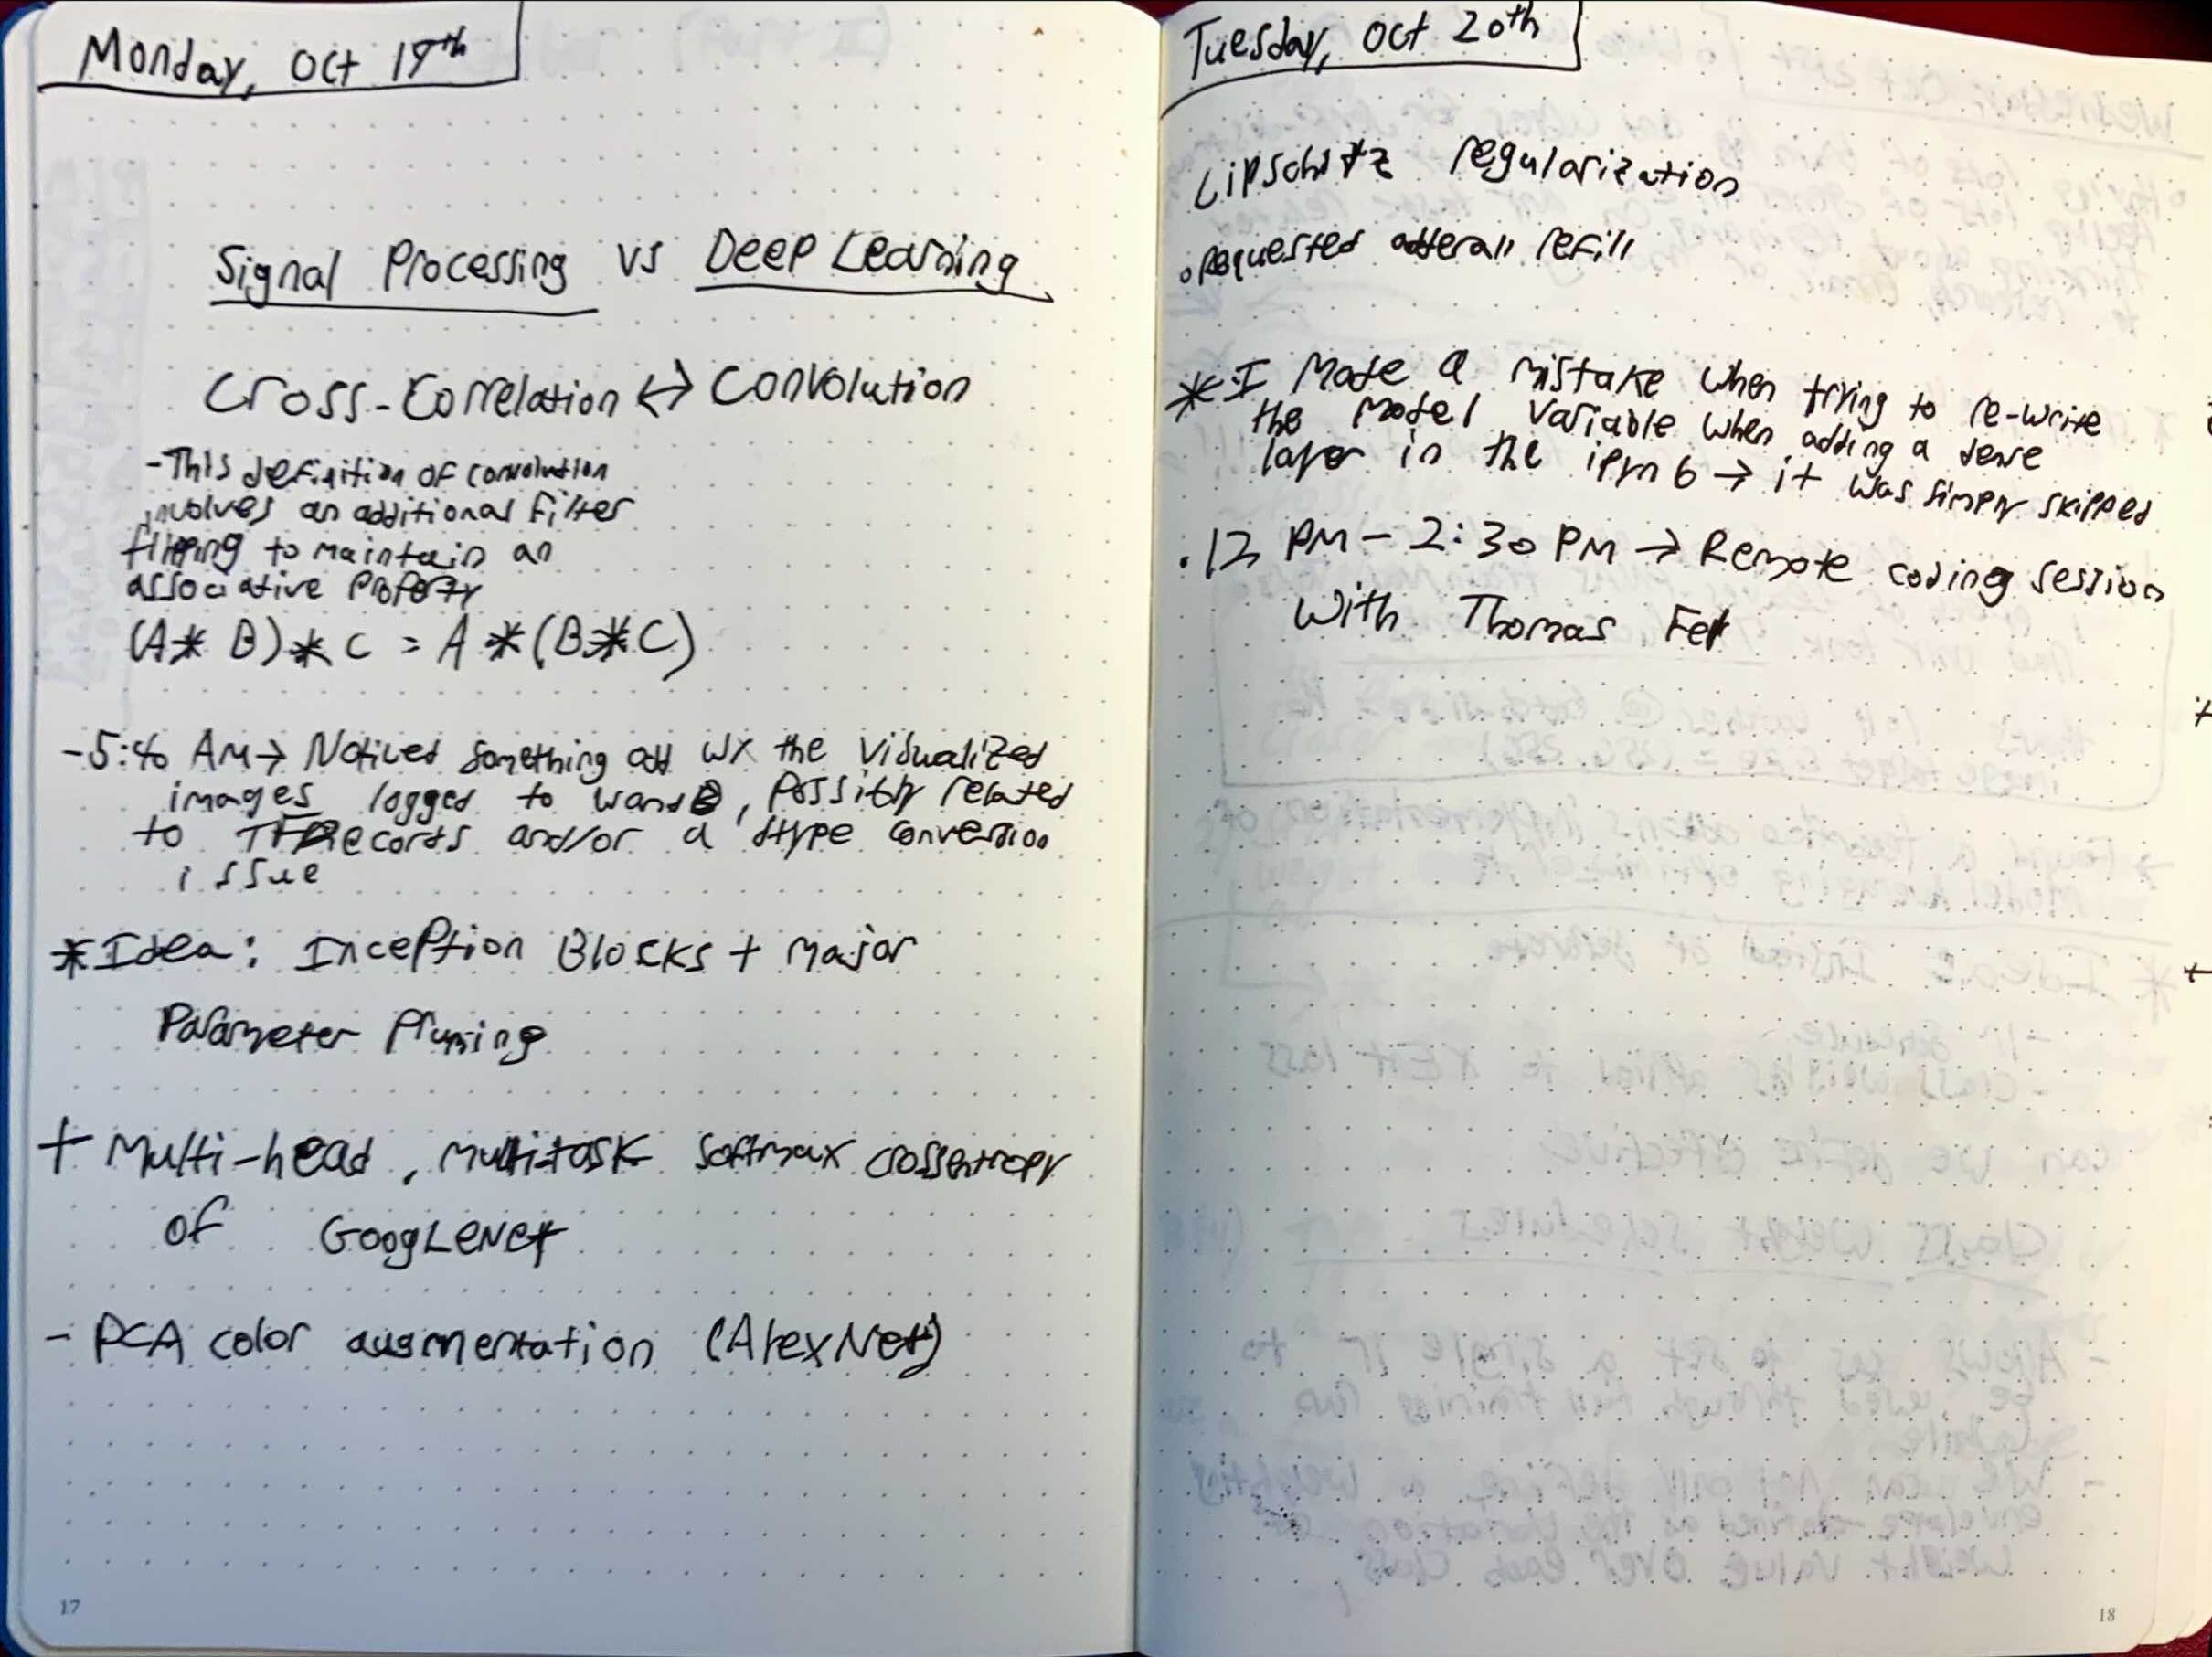 Monday, Oct 19th
Signal Processing vs Deep Learning
Cross-Correlation ↔ Convolution
-This definition of convolution
involves an additional filter
flipping to maintain an
associative property
(A * B) * C = A * (B * C)
-5:40 AM → Noticed something odd w/ the visualized
images logged to WandB, possibly related
to TFRecords and/or a dtype conversion
issue
*Idea: Inception Blocks + major
Parameter Pruning
+ Multi-head, multi-task softmax crossentropy
of GoogLeNet
- PCA color augmentation (AlexNet)
17
Tuesday, Oct 20th
Lipschitz regularization
o Requested adderall refill
* I made a mistake when trying to re-write
the model variable when adding a dense
layer in the → it was simply skipped
.12 PM - 2:30 PM → Remote coding session
with Thomas Fel
18